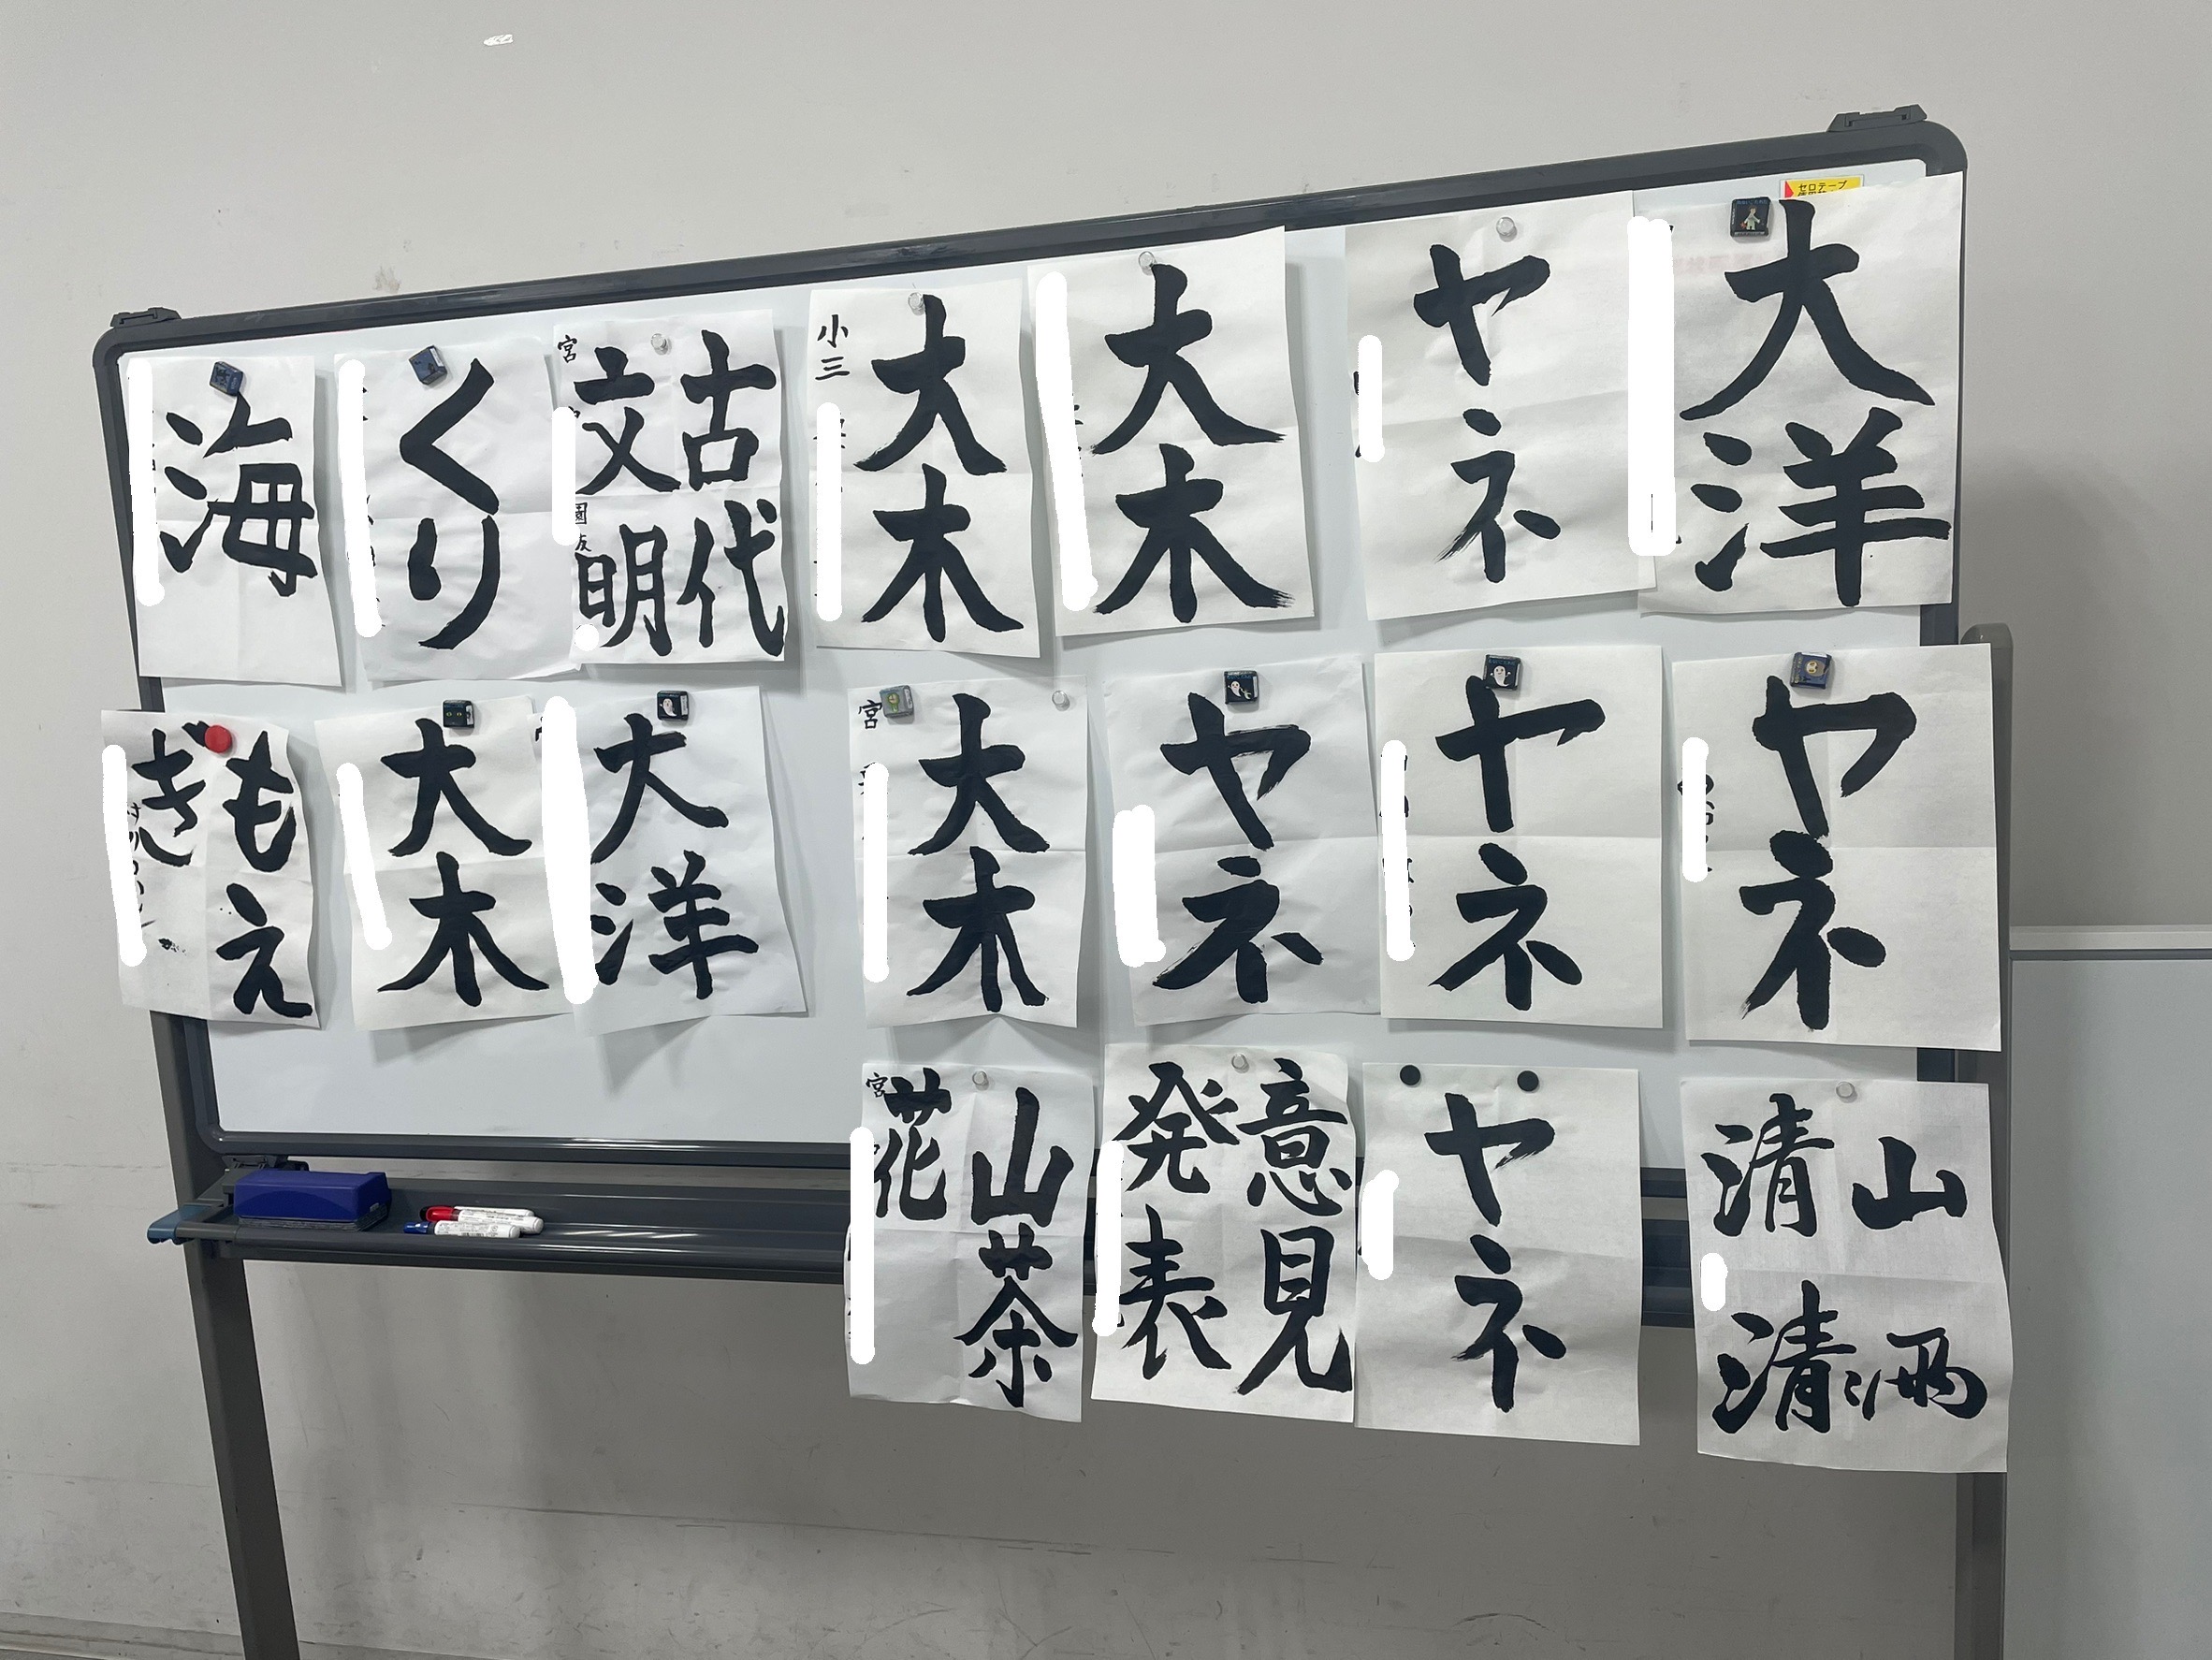 セロテープ
海
くり
宮
古代
文明
小三
大木
大木
ヤネ
大洋
もえ
ぎ
大木
大洋
宮
大木
ヤネ
ヤネ
ヤネ
宮
山茶
花
意見
発表
ヤネ
山
清
清